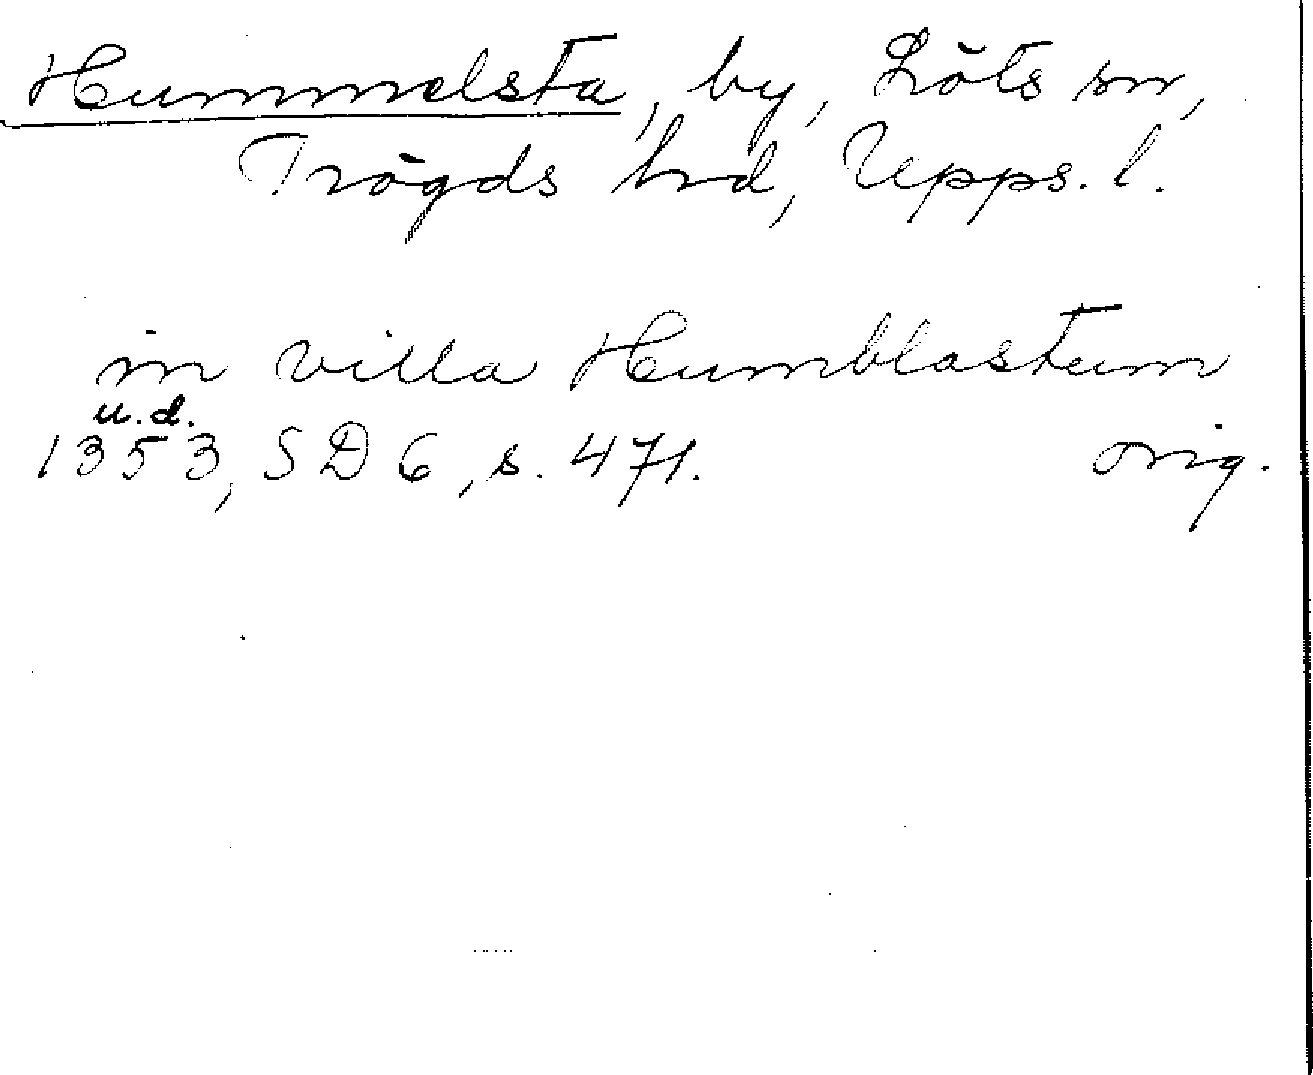 Hummelsta, by, Löts sn,
Trögds hrd, Upps. l.
in villa Humblastum
u.d.
1353, SD 6, s. 471. orig.